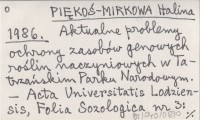 PIĘKOŚ-MIRKOWA Halina
1986. Aktualne problemy
ochrony zasobów genowych
roślin naczyniowych w Ta-
trzańskim Parku Narodowym.
— Acta Universitatis Lodzien-
sis, Folia Sozologica nr 3: